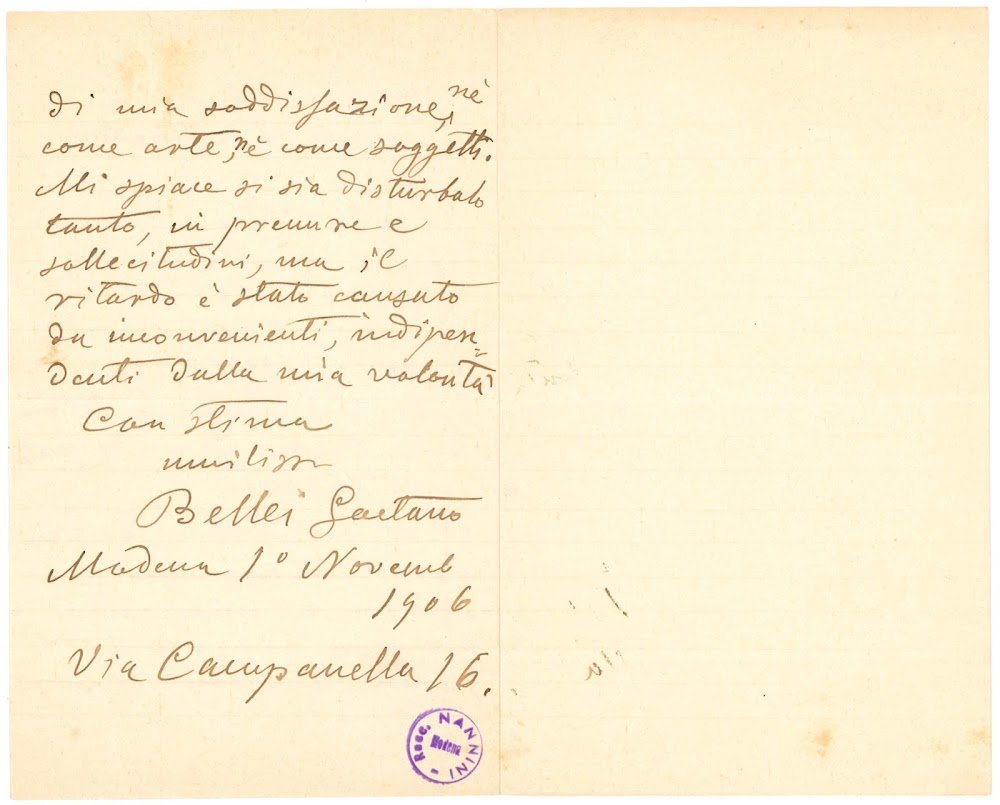 di mia soddisfazione, nè
come arte, nè come soggetti.
Mi spiace si sia disturbato
tanto, in premure e
sollecitudini, ma il
ritardo è stato causato
da inconvenienti, indipen=
denti dalla mia volontà
Con stima
umiliss
Bellei Gaetano
Modena 1º Novemb
1906
Via Campanella 16.
Racc. NANNINI
Modena